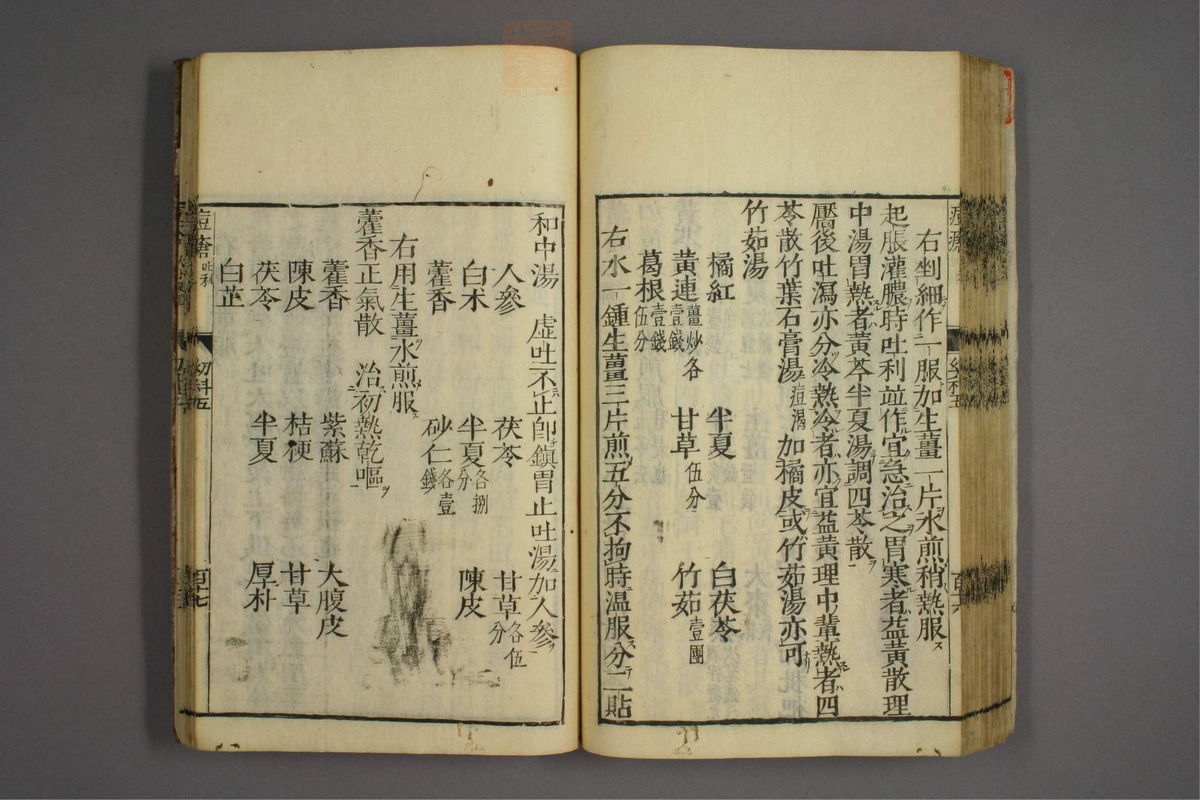 右剉細作一服加生薑一片水煎稍熱服
起脹灌膿時吐利並作宜急治之胃寒者益黃散理
中湯胃熱者黃芩半夏湯調四苓散
靨後吐瀉亦分冷熱冷者亦宜益黃理中輩熱者四
苓散竹葉石膏湯痘渴加橘皮或竹茹湯亦可
竹茹湯
橘紅 半夏 白茯苓
黃連薑炒各壹錢 甘草伍分 竹茹壹團
葛根壹錢伍分
右水一鍾生薑三片煎五分不拘時溫服分二貼
和中湯 虛吐不止即鎮胃止吐湯加人參
人參 茯苓 甘草各伍分
白朮 半夏各捌分 陳皮
藿香 砂仁各壹錢
右用生薑水煎服
藿香正氣散 治初熱乾嘔
藿香 紫蘇 大腹皮
陳皮 桔梗 甘草
茯苓 半夏 厚朴
白芷
痘瘡吐利 幼科五 百十七